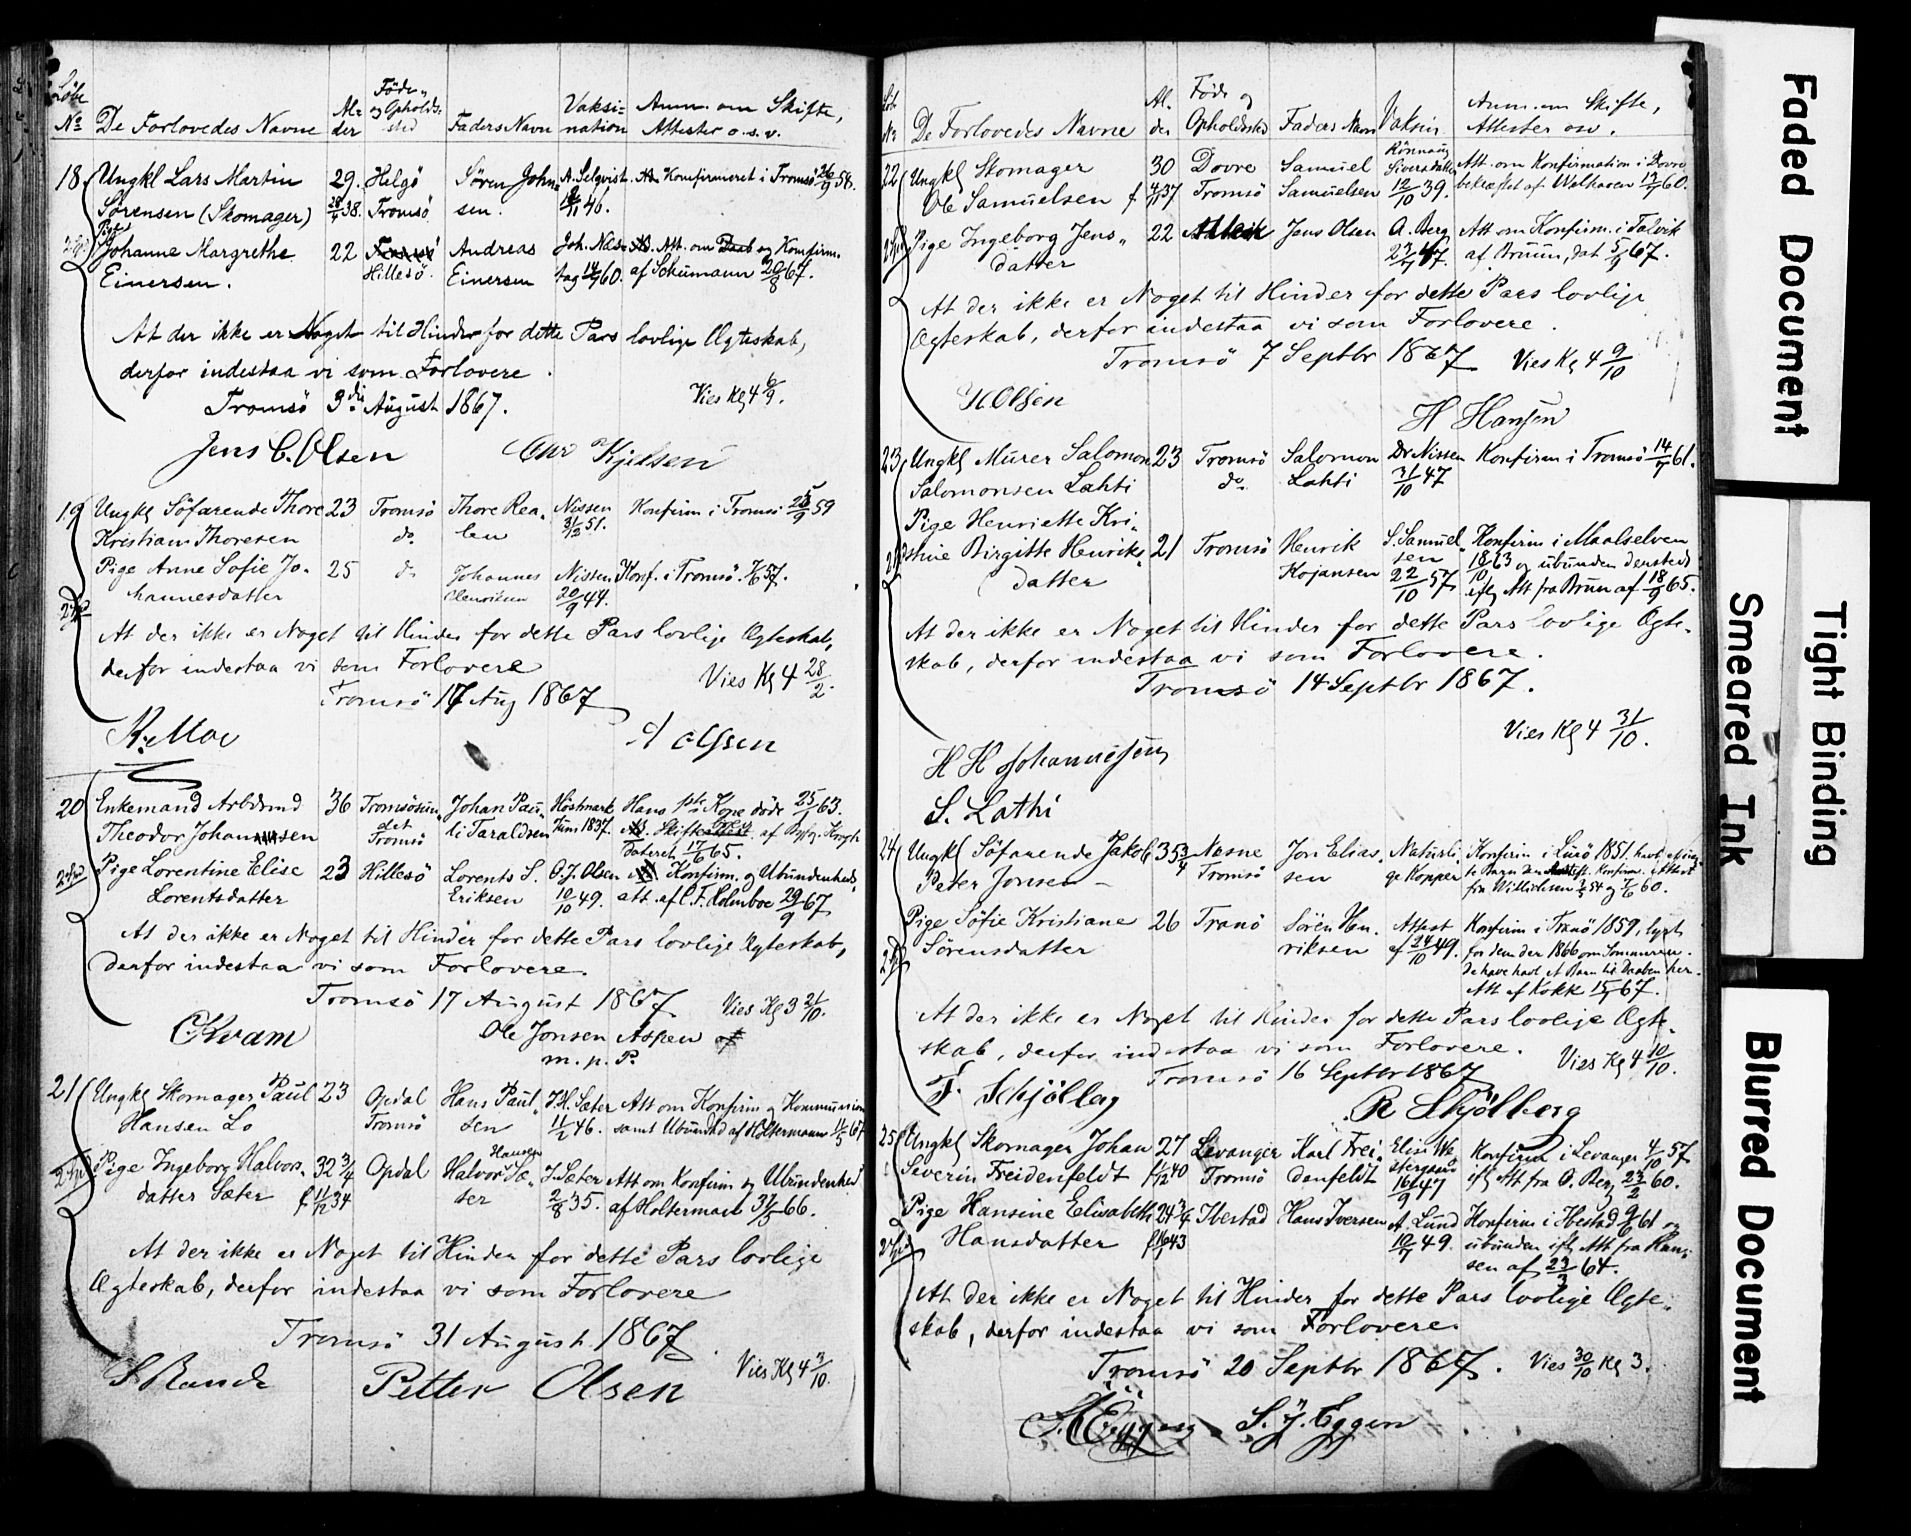 Löbe No De Forlovedes Navne Al- der Føde- og Opholds- sted Faders Navn Vaksi- nation Anm. om Skifte, Attester o.s.v.
18. Ungkl Lars Martin 29. Helgö Sören John- A. Selqvist Konfirmeret i Tromsö 26/9 58.
Sörensen (Skomager) 38. Tromsö sen. 46.
Pige
Johanne Margrethe 22 Andreas Joh. Næs- Att. om Daab og Konfirm.
Einersen. Hillesö. Einersen tag 60. af Schumann 20/8 67.
At der ikke er Noget til Hinder for dette Pars lovlige Ægteskab,
derfor indestaa vi som Forlovere.
Tromsö 3die August 1867. Vies Kl 4 6/9.
Jens C. Olsen Chr Kjelsen
19 Ungkl Söfarende Thore 23 Tromsö Thore Rea- Nissen Konfirm i Tromsö 59
Kristian Thoresen do len 31/3 51.
Pige Anne Sofie Jo- 25 do Johannes Nissen Konf. i Tromsö 57.
hannesdatter Henriksen 20/9 44.
At der ikke er Noget til Hinder for dette Pars lovlige Ægteskab,
derfor indestaa vi som Forlovere Vies Kl 4 28/2.
Tromsö 17 Aug 1867
K. Moe A Olsen
20 Enkemand Arbdsmd 36 Tromsösun- Johan Pau- Höstmark Hans Kone döde 25/1 63.
Theodor Johannsen det Tromsö li Taraldsen Juni 1837. Skifte af Byfg. Krogh
dateret 17/6 65.
Pige Lorentine Elise 23 Hillesö Lorents S. O. J. Olsen Konfirm. og Ubundenheds-
Lorentsdatter Eriksen 10/10 49. att. af C. F. Holmboe 29/9 67
At der ikke er Noget til Hinder for dette Pars lovlige Ægteskab,
derfor indestaa vi som Forlovere.
Tromsö 17 August 1867 Vies Kl 3 21/10.
C Kvam Ole Jonsen Aspen
m. p. P.
21 Ungkl Skomager Paul 23 Opdal Hans Paul- J. H. Sæter Att om Konfirm og Kommunion
Hansen Lo Tromsö sen 11/2 46. samt Ubundhd af Holtermann 11/5 67
Pige Ingeborg Halvors- 32 3/4 Opdal Halvor Hansen Sæ- J. Sæter Att om Konfirm og Ubundenhed
datter Sæter f 11/12 34 ter 2/8 35. af Holtermann 31/5 66.
At der ikke er Noget til Hinder for dette Pars lovlige
Ægteskab, derfor indestaa vi som Forlovere
Tromsö 31 August 1867
S Rande Petter Olsen Vies Kl 4 3/10.
Löb No De Forlovedes Navne Al- der Föde og Opholdssted Faders Navn Vaksin Anm. om Skifte, Attester osv.
22 Ungkl Skomager 30 Dovre Samuel Rönnaug Siversdatter Att om Konfirmation i Dovre
Ole Samuelsen f 37 Tromsö Samuelsen 12/10 39. bekræftet af Wolhaven 60.
Pige Ingeborg Jens- 22 Jens Olsen A. Berg Att om Konfirm. i Talvik
datter 47. af Bruun, dat 5/9 67.
At der ikke er Noget til Hinder for dette Pars lovlige
Ægteskab, derfor indestaa vi som Forlovere.
Tromsö 7 Septbr 1867 Vies Kl 4 9/10
H Olsen
H Hansen
23 Ungkl Murer Salomon 23 Tromsö Salomon Dr Nissen Konfirm i Tromsö 14/7 61.
Salomonsen Lahti do Lahti 31/10 47
Pige Henriette Kri-
stine Birgitte Henriks- 21 Tromsö Henrik S. Samuel- Konfirm i Maalselven
datter Kojansen sen 22/10 57 18/10 63 og ubunden densteds
iflg Att fra Bruun af 18/9 65.
At der ikke er Noget til Hinder for dette Pars lovlige Ægte-
skab, derfor indestaa vi som Forlovere.
Tromsö 14 Septbr 1867.
Vies Kl 4 31/10.
H H Johannesen
S. Lathi
24 Ungkl Söfarende Jakob 35 3/4 Nesne Jon Elias- Naturli- Konfirm i Lurö 1851.
Peter Jonsen Tromsö sen ge Kopper
fra 54 og 60.
Pige Sofie Kristiane 26 Tranö Sören Hen- Attest Konfirm i Tranö 1859, lyst
Sörensdatter riksen af 24/10 49. for dem der 1866 om Sommeren.
De have havt et Barn til Daaben her.
Att af Kokk 67.
At der ikke er Noget til Hinder for dette Pars lovlige Ægte-
skab, derfor indestaa vi som Forlovere. Vies Kl 4 10/10.
Tromsö 16 Septbr 1867
R Skjölberg
25 Ungkl Skomager Johan 27 Levanger Karl Frei- Konfirm i Levanger 4/10 57
Severin Freidenfeldt f 1/12 40 Tromsö denfeldt 16/9 47 iflg Att fra O. Berg 23/2 60.
Pige Hansine Elisabeth 24 3/4 Ibestad Hans Iversen A. Lund Konfirm i Ibestad 9/6 61 og
Hansdatter 43 10/7 49. ubunden iflg Att fra Hans-
sen af 23/3 64.
At der ikke er Noget til Hinder for dette Pars lovlige Ægte-
skab, derfor indestaa vi som Forlovere.
Tromsö 20 Septbr 1867. Vies 30/10 Kl 3.
Eggen S. J. Eggen
Faded Document
Tight Binding
Smeared Ink
Blurred Document